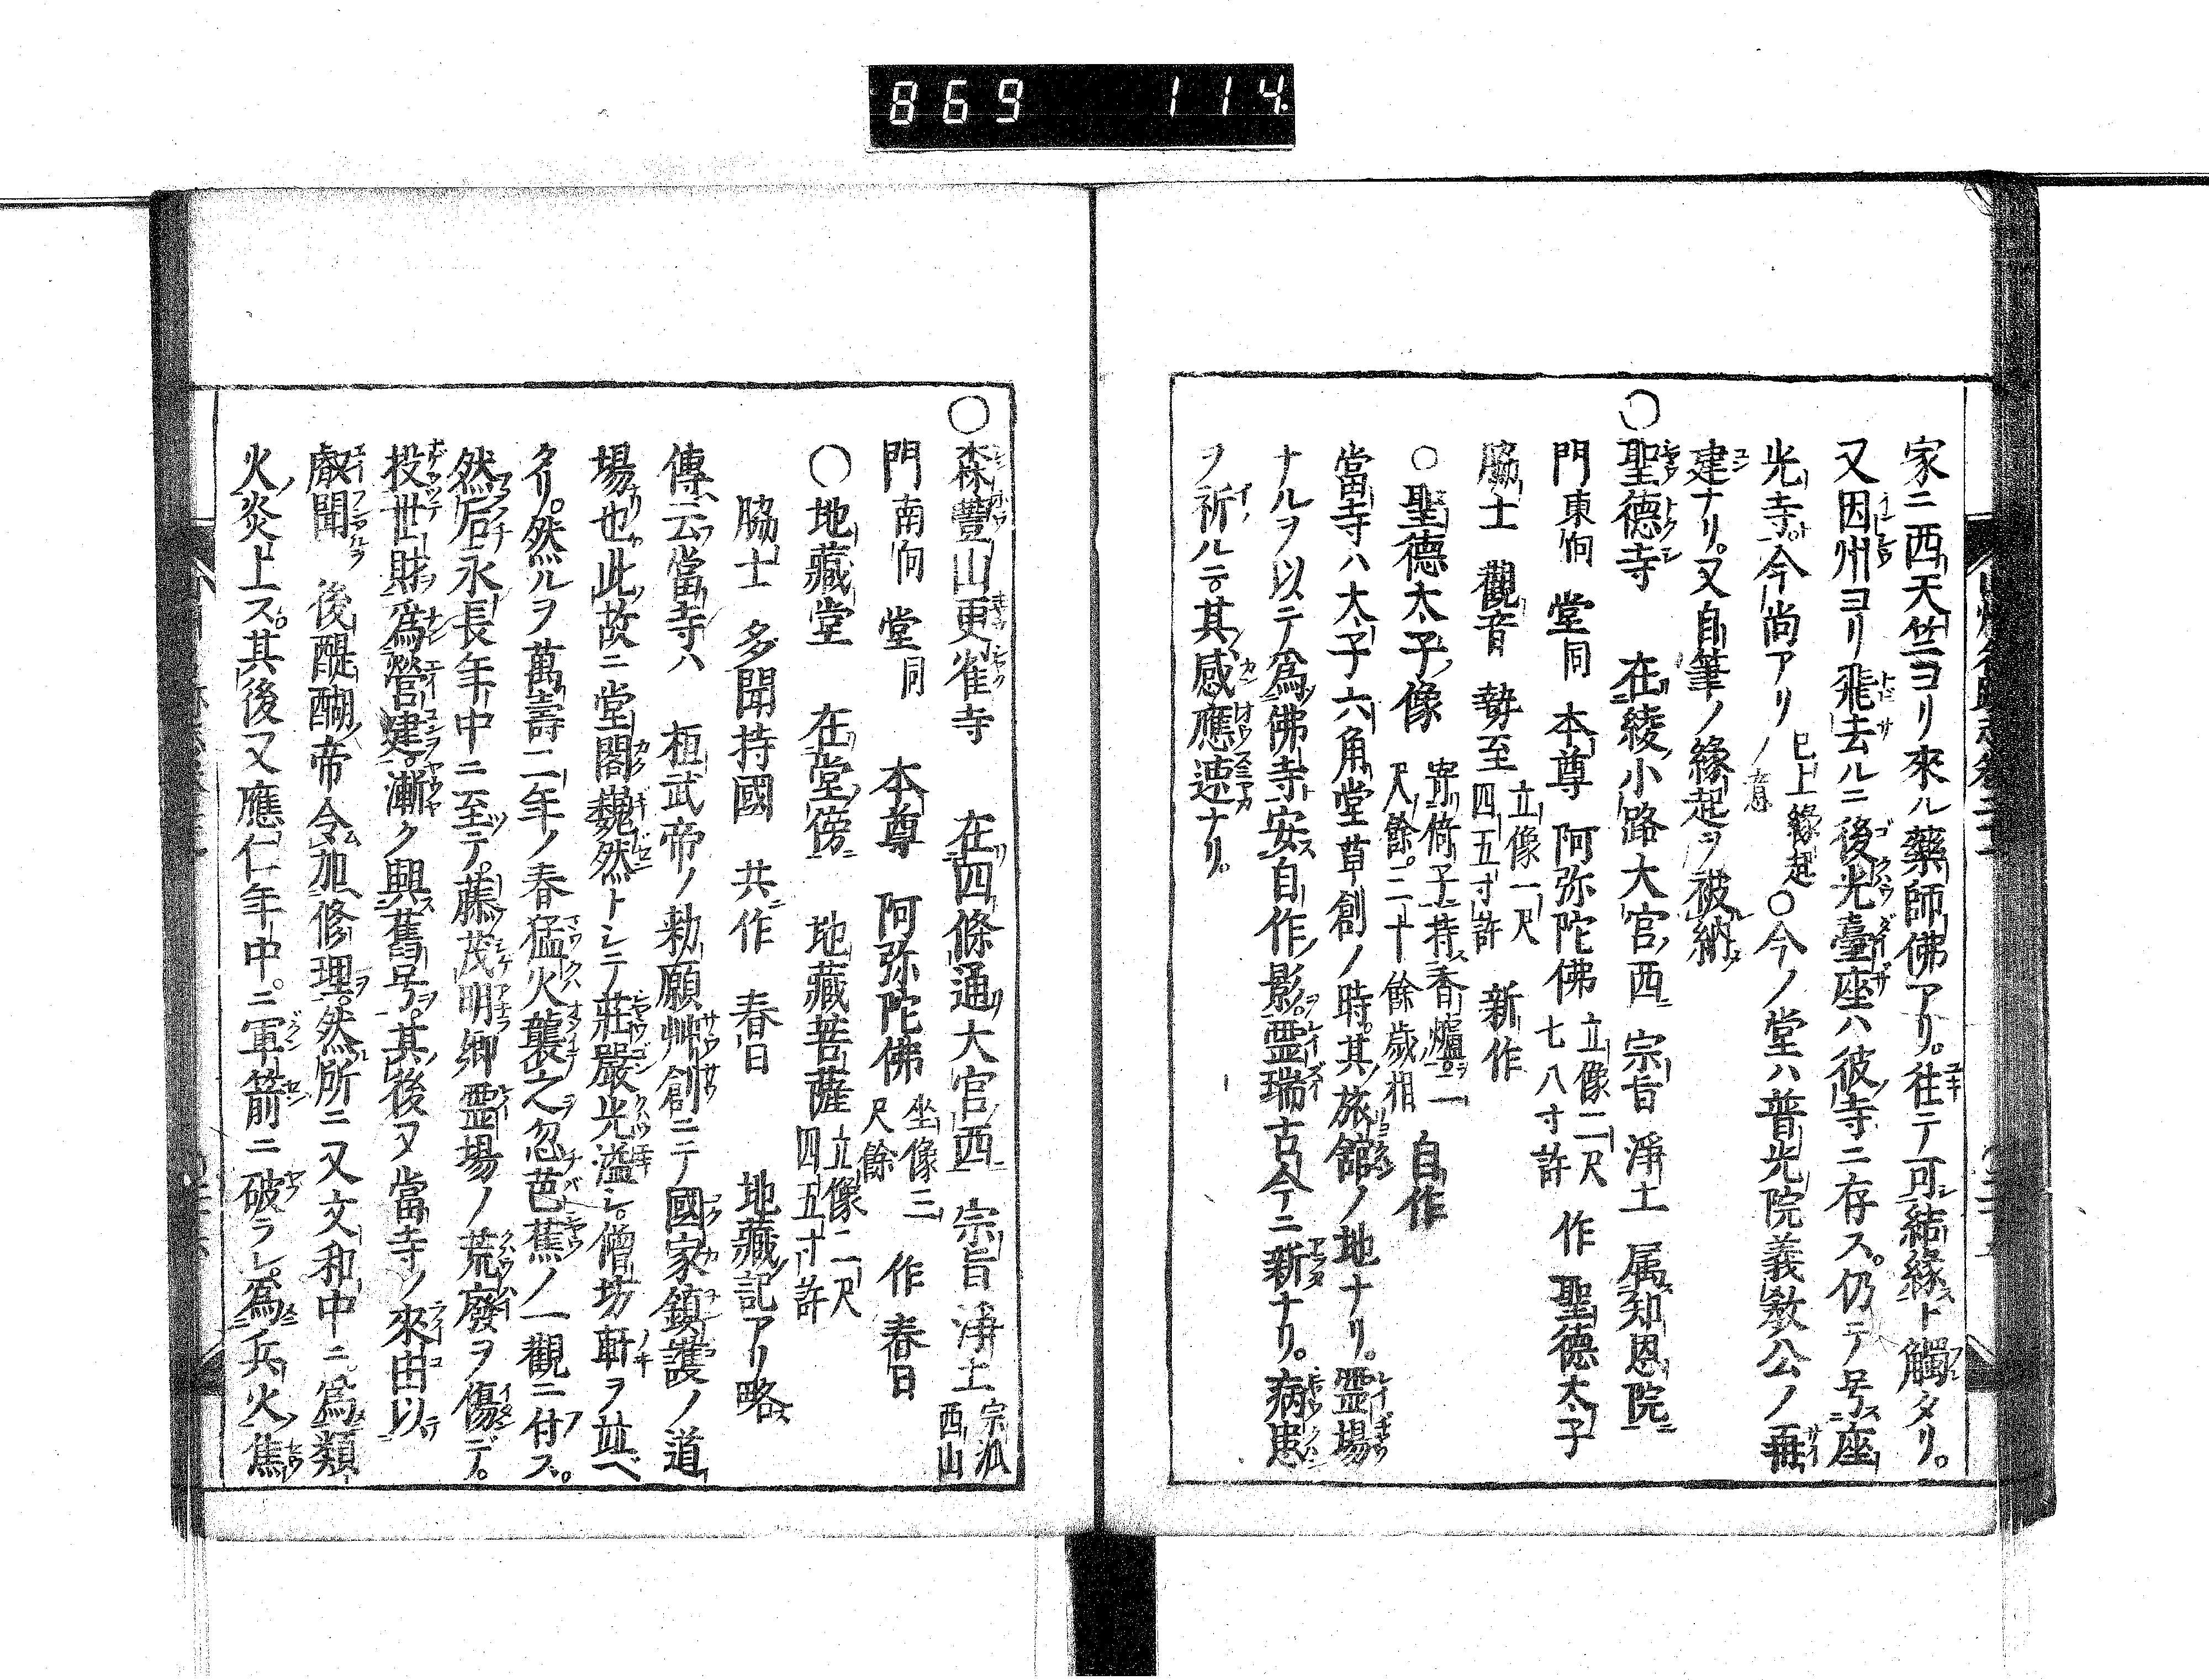 869 114
家ニ西天竺ヨリ來ル藥師佛アリ。往テ可結緣ト觸タリ。
又因州ヨリ飛去ルニ後光臺座ハ彼寺ニ存ス。仍テ号座
光寺。今尚アリ 已上緣起ノ意 ○今ノ堂ハ普光院義教公ノ再
建ナリ。又自筆ノ緣起ヲ被納
○聖德寺 在綾小路大宮西 宗旨 淨土 属知恩院
門東向 堂同 本尊 阿弥陀佛 立像二尺七八寸許 作 聖德太子
脇士 觀音 勢至 立像一尺四五寸許 新作
○聖德太子像 寄倚子持香爐。二尺餘。二十餘歲相 自作
當寺ハ太子六角堂草創ノ時。其旅舘ノ地ナリ。霊場
ナルヲ以テ爲佛寺安自作影。霊瑞古今ニ新ナリ。病患
ヲ祈ルニ其感應速ナリ。
○森豐山更雀寺 在四條通大宮西 宗旨 淨土 宗派西山
門南向 堂同 本尊 阿弥陀佛 坐像三尺餘 作 春日
○地藏堂 在堂傍 地藏菩薩 立像二尺四五寸許
脇士 多聞持國 共作 春日 地藏記アリ略
傳云當寺ハ 桓武帝ノ勅願艸創ニテ國家鎮護ノ道
場也此故ニ堂閣巍然トシテ莊嚴光溢レ。僧坊軒ヲ並ベ
タリ。然ルヲ萬壽二年ノ春猛火襲之忽芭蕉ノ一觀ニ付ス。
然后永長年中ニ至テ。藤茂明卿霊場ノ荒廢ヲ傷デ。
投世財爲營建。漸ク興舊号。其後又當寺ノ來由以
叡聞 後醍醐帝令加修理。然所ニ又文和中ニ。爲類
火炎上ス。其後又應仁年中。ニ軍箭ニ破ラレ。爲兵火焦